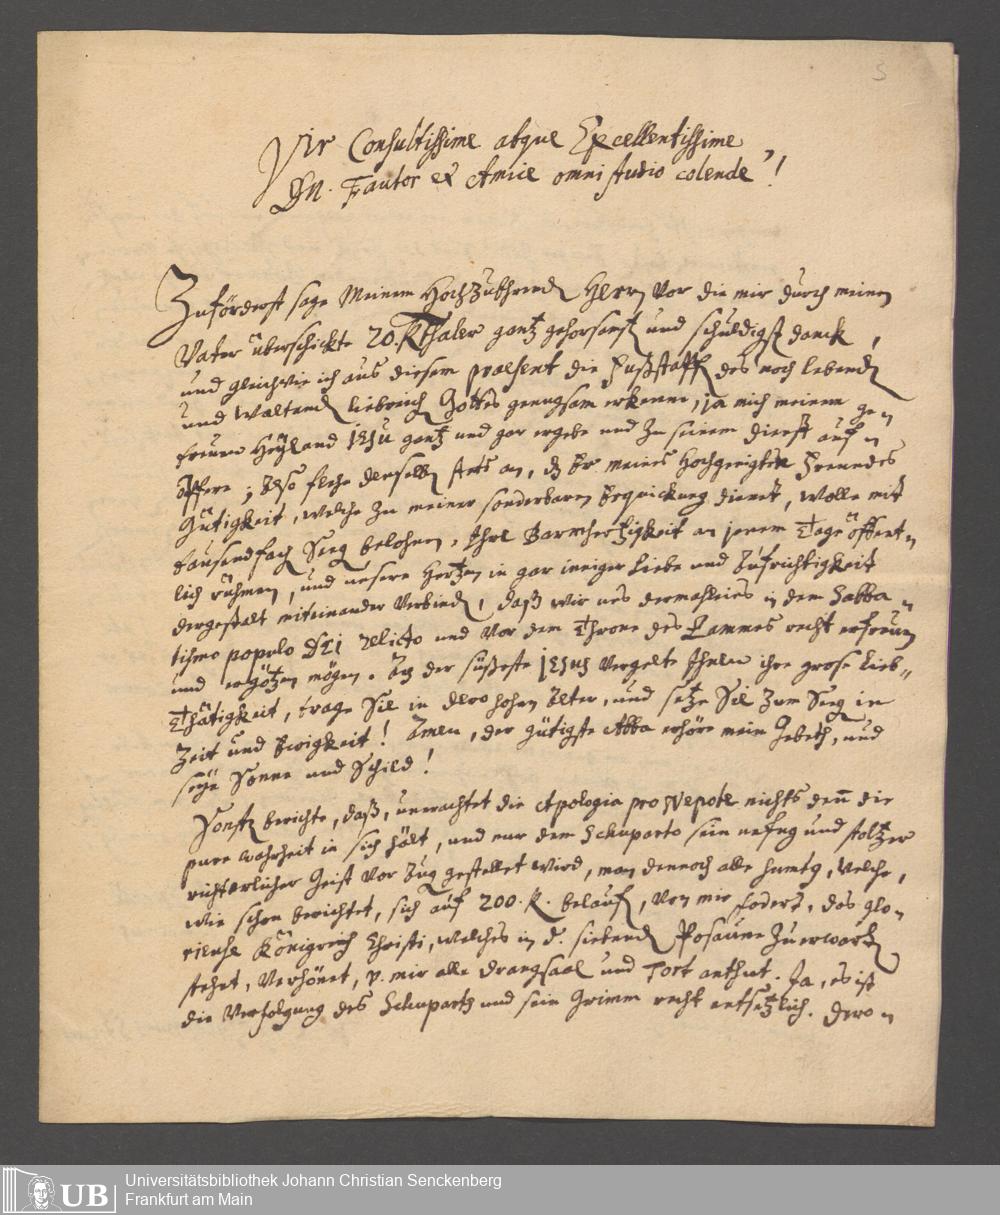 5
Vir Consultissime atque Excellentissime
Dn. Fautor et Amice omni studio colende!
Zuförderst sage Meinem Hochzuehrend Herrn vor die mir durch meinen
Vater überschickte 20. RThaler gantz gehorsamst und schuldigst danck,
und gleichwie ich aus diesem praesent die Fußstapff des noch lebend
und waltend liebreich Gottes genugsam erkenne, ja mich meinem ge-
treuen Heyland JESU gantz und gar ergebe und zu seinem dienst auf-
öffere; Also flehe denselben stets an, dz Er meines Hochgeneigten Freundes
Gütigkeit, welche zu meiner sonderbaren Erquickung dienet, wolle mit
tausendfach Seeg belohnen, Ihre Barmhertzigkeit an jenem Tage öffent-
lich rühmen, und unsere Hertzen in gar inniger Liebe und Aufrichtigkeit
dergestalt miteinander verbind, daß wir uns dermahleins in dem Sabba-
tismo populo DEI relicto und vor dem Throne des Lammes recht erfreuen
und ergötzen mögen. Ach der süßeste JESUS vergelte Ihnen ihre große Lieb-
Thätigkeit, trage Sie in dero hohen Alter, und setze Sie zum Seeg in
Zeit und Ewigkeit! Amen, der gütigste Abba erhöre mein Gebeth, und
seye Sonne und Schild!
Sonst berichte, daß, unerachtet die Apologia pro Nepote nichts denn die
pure wahrheit in sich hält, und nur dem Schuparto sein unfug und stoltzer
richterlicher Geist vor Aug gestellet wird, man dennoch alle Humtg, welche,
wie schon berichtet, sich auf 200. R. belauf, von mir fodert, das glo-
rieuse Königreich Christi, welches in d. siebend Posaune zu erwart
stehet, verhönet, p. mir alle drangsaal und Tort anthut. Ja, es ist
die Verfolgung des Schuparts und sein Grimm recht entsetzlich. Dero-
UB
Universitätsbibliothek Johann Christian Senckenberg
Frankfurt am Main